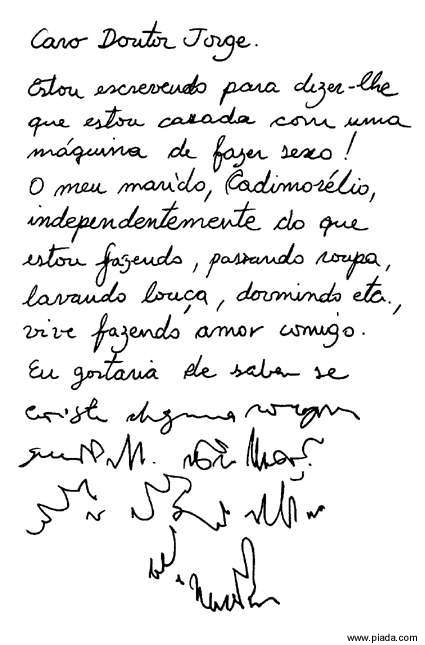 Caro Doutor Jorge.
Estou escrevendo para dizer-lhe
que estou casada com uma
máquina de fazer sexo!
O meu marido, Cadimorélio,
independentemente do que
estou fazendo, passando roupa,
lavando louça, dormindo etc.,
vive fazendo amor comigo.
Eu gostaria de saber se
existe alguma
www.piada.com